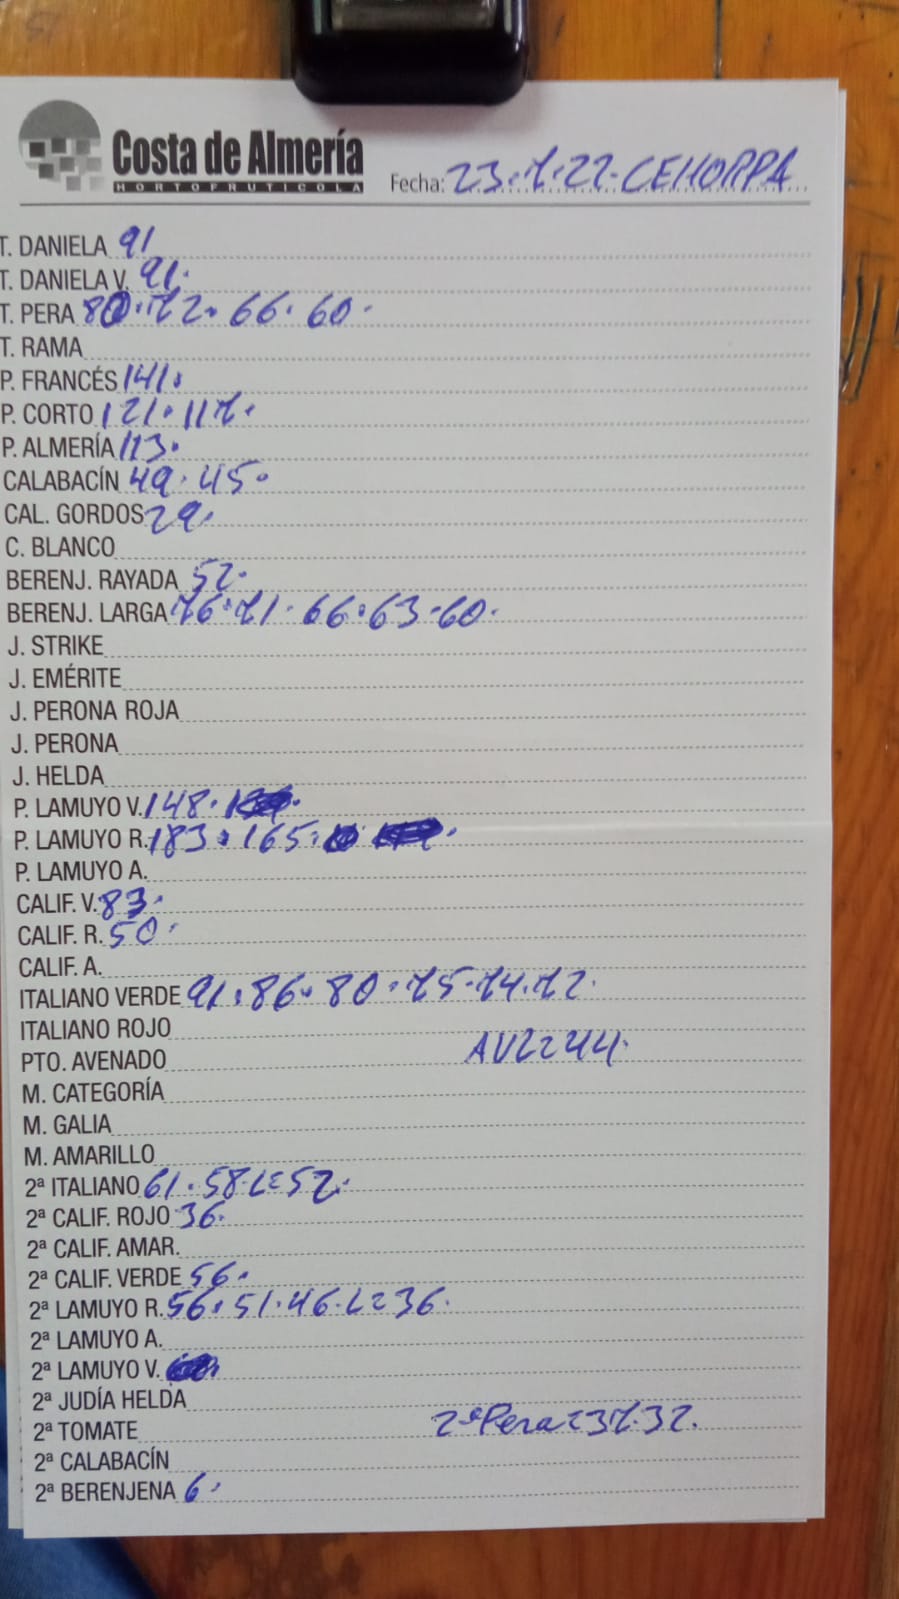 Costa de Almería
HORTOFRUTICOLA
Fecha: 23.7.22. CEHORPA
T. DANIELA 91
T. DANIELA V. 91.
T. PERA 80. 72. 66. 60.
T. RAMA
P. FRANCÉS 141.
P. CORTO 121. 117.
P. ALMERÍA 113.
CALABACÍN 49. 45.
CAL. GORDOS 29.
C. BLANCO
BERENJ. RAYADA 52.
BERENJ. LARGA 76. 71. 66. 63. 60.
J. STRIKE
J. EMÉRITE
J. PERONA ROJA
J. PERONA
J. HELDA
P. LAMUYO V. 148.
P. LAMUYO R. 183. 165.
P. LAMUYO A.
CALIF. V. 83.
CALIF. R. 50.
CALIF. A.
ITALIANO VERDE 91. 86. 80. 75. 74. 72.
ITALIANO ROJO
PTO. AVENADO AV2=44.
M. CATEGORÍA
M. GALIA
M. AMARILLO
2ª ITALIANO 61. 58. L=52.
2ª CALIF. ROJO 36.
2ª CALIF. AMAR.
2ª CALIF. VERDE 56.
2ª LAMUYO R. 56. 51. 46. L=36.
2ª LAMUYO A.
2ª LAMUYO V.
2ª JUDÍA HELDA
2ª TOMATE 2ª Pera=37.32.
2ª CALABACÍN
2ª BERENJENA 6.